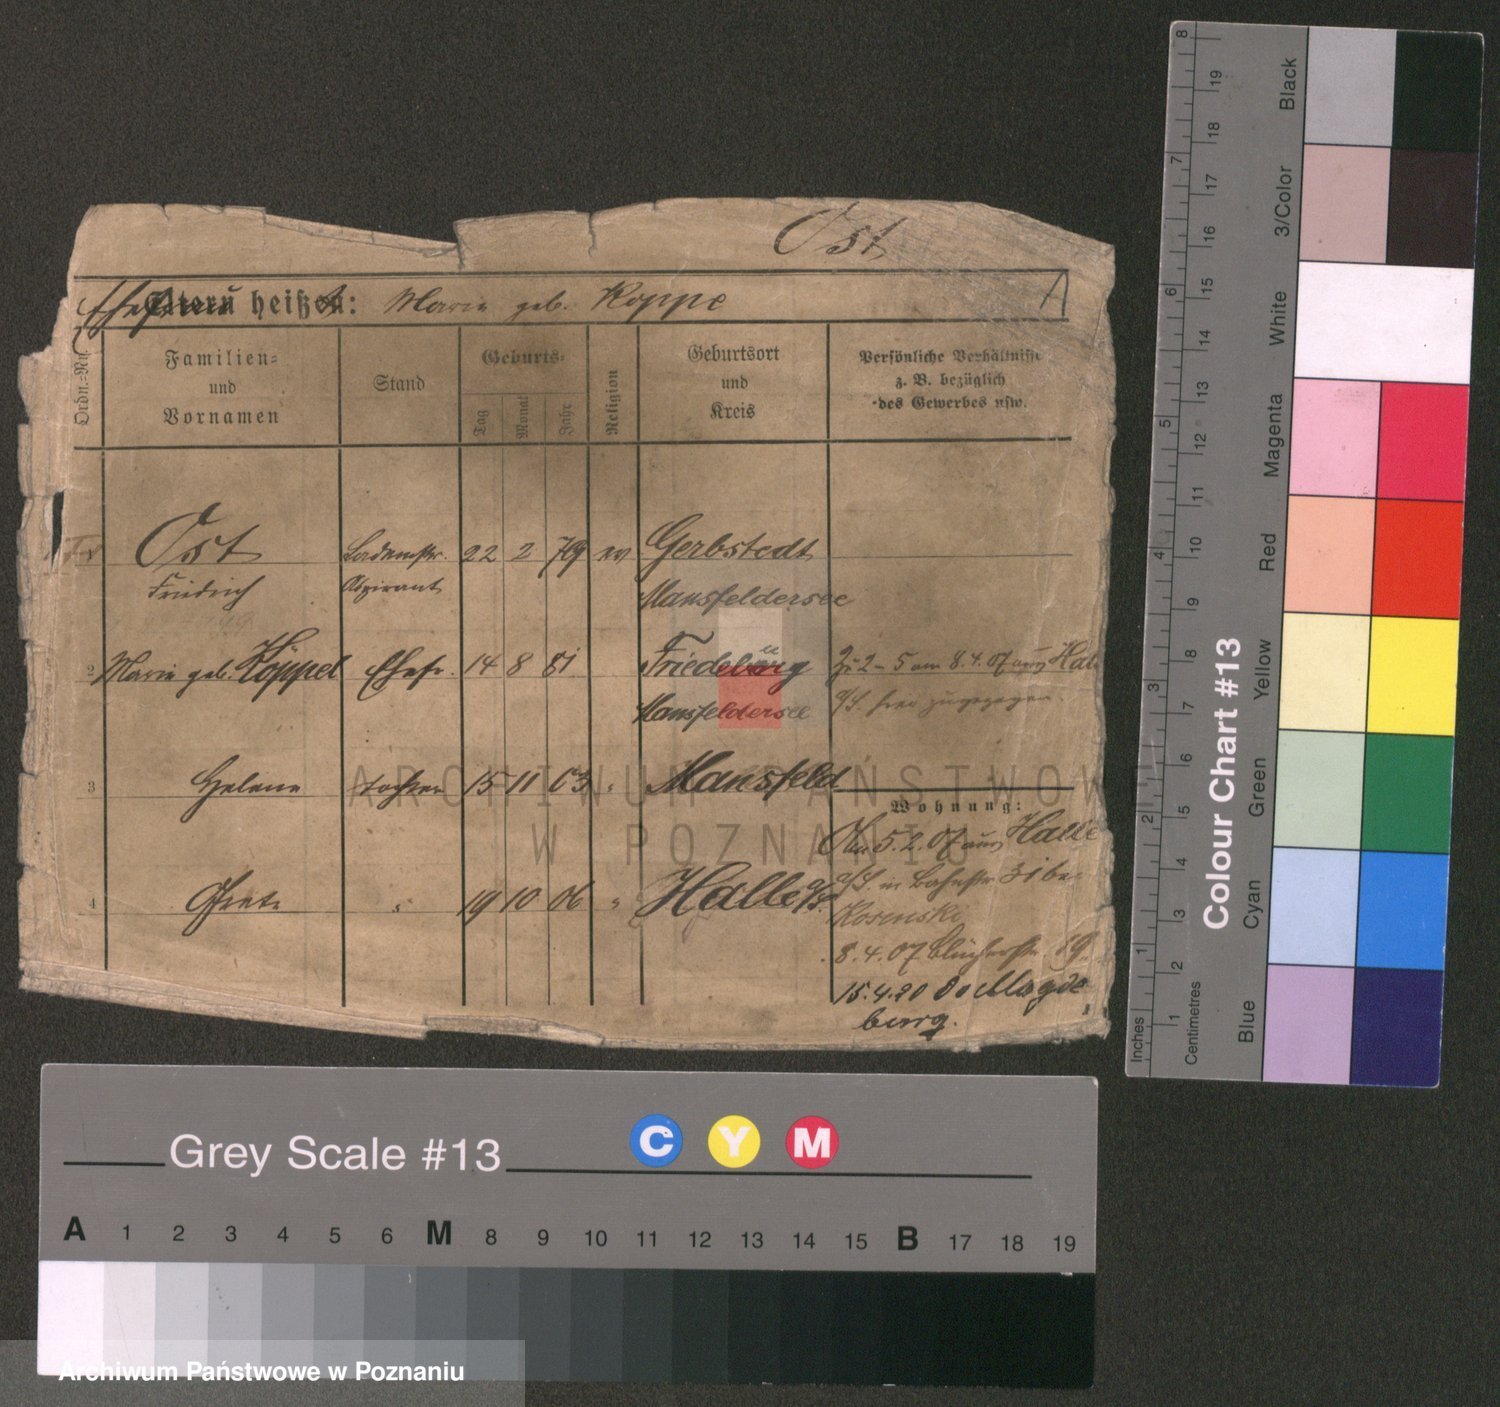 Ost
Eltern heißen: Marie geb. Koppe
Ordn.-Nr.
Familien-
und
Vornamen
Stand
Geburts-
Tag
Monat
Jahr
Religion
Geburtsort
und
Kreis
Persönliche Verhältnisse
z. B. bezüglich
des Gewerbes usw.
Ost 22 2 79 ev Gerbstedt
Friedrich Aspirant Mansfeldersee
2 Marie geb. Köppel Ehefr. 14 8 81 Friedeburg Zu 2-5 am 8.4.07 aus Halle
Mansfeldersee a/S. hier zugezogen.
3 Helene Tochter 15 11 03 " Mansfeld
Wohnung:
5.2.07 aus Halle
4 Grete " 19 10 06 " Halle a/S. a/S. in Bahnstr. 31 bei
Rosenski
8.4.07 Blücherstr. 19.
15.4.20 Magde
burg.
ARCHIWUM PAŃSTWOWE
W POZNANIU
Grey Scale #13
C Y M
A 1 2 3 4 5 6 M 8 9 10 11 12 13 14 15 B 17 18 19
Colour Chart #13
Blue Cyan Green Yellow Red Magenta White 3/Color Black
Inches 1 2 3 4 5 6 7 8
Centimetres 1 2 3 4 5 6 7 8 9 10 11 12 13 14 15 16 17 18 19
Archiwum Państwowe w Poznaniu